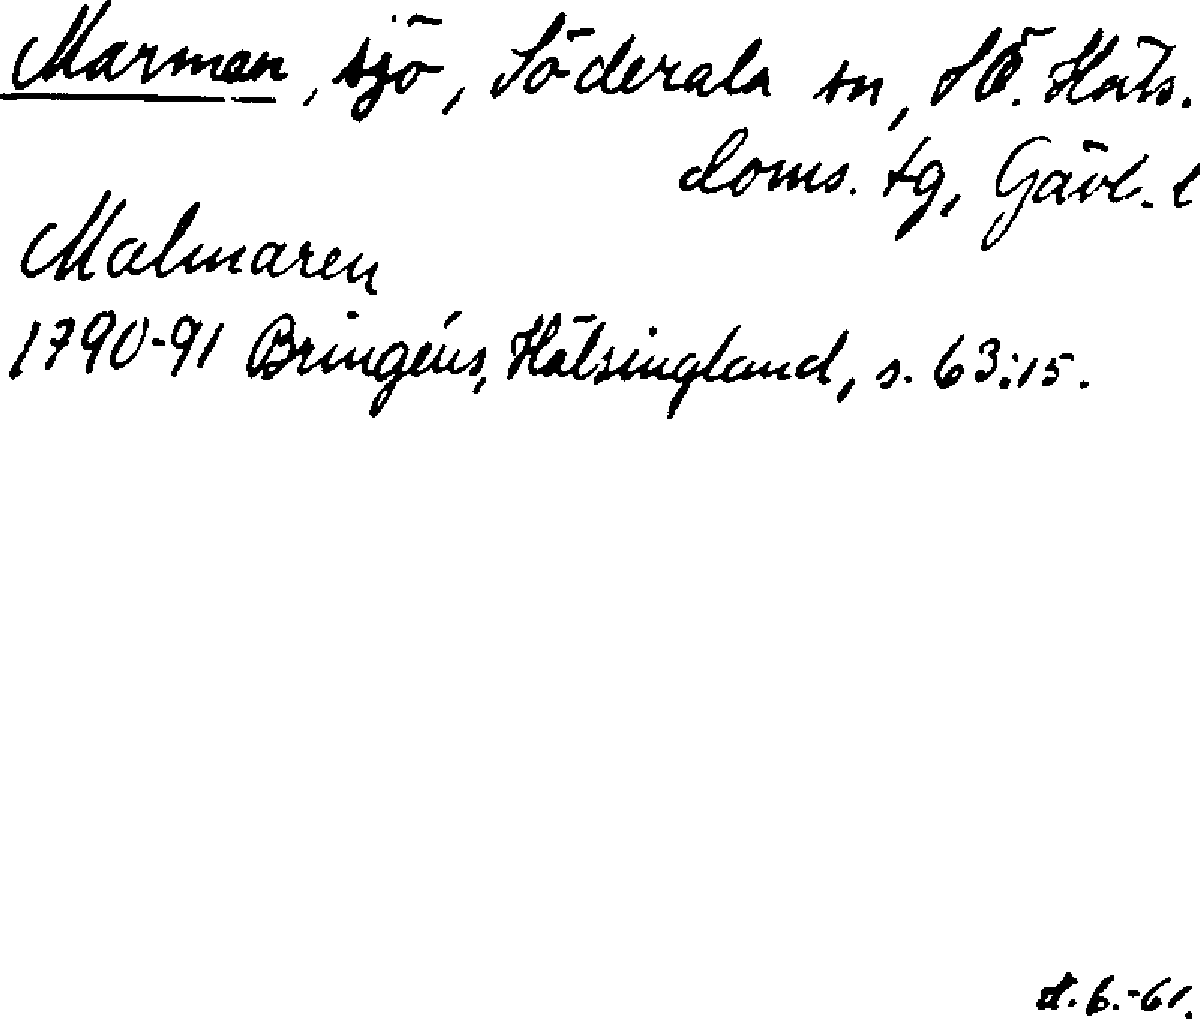 Marmen, sjö, Söderala sn, SÖ. Häls.
doms. tg, Gävl. l
Malmaren
1790-91 Bringéus, Hälsingland, s. 63:15.